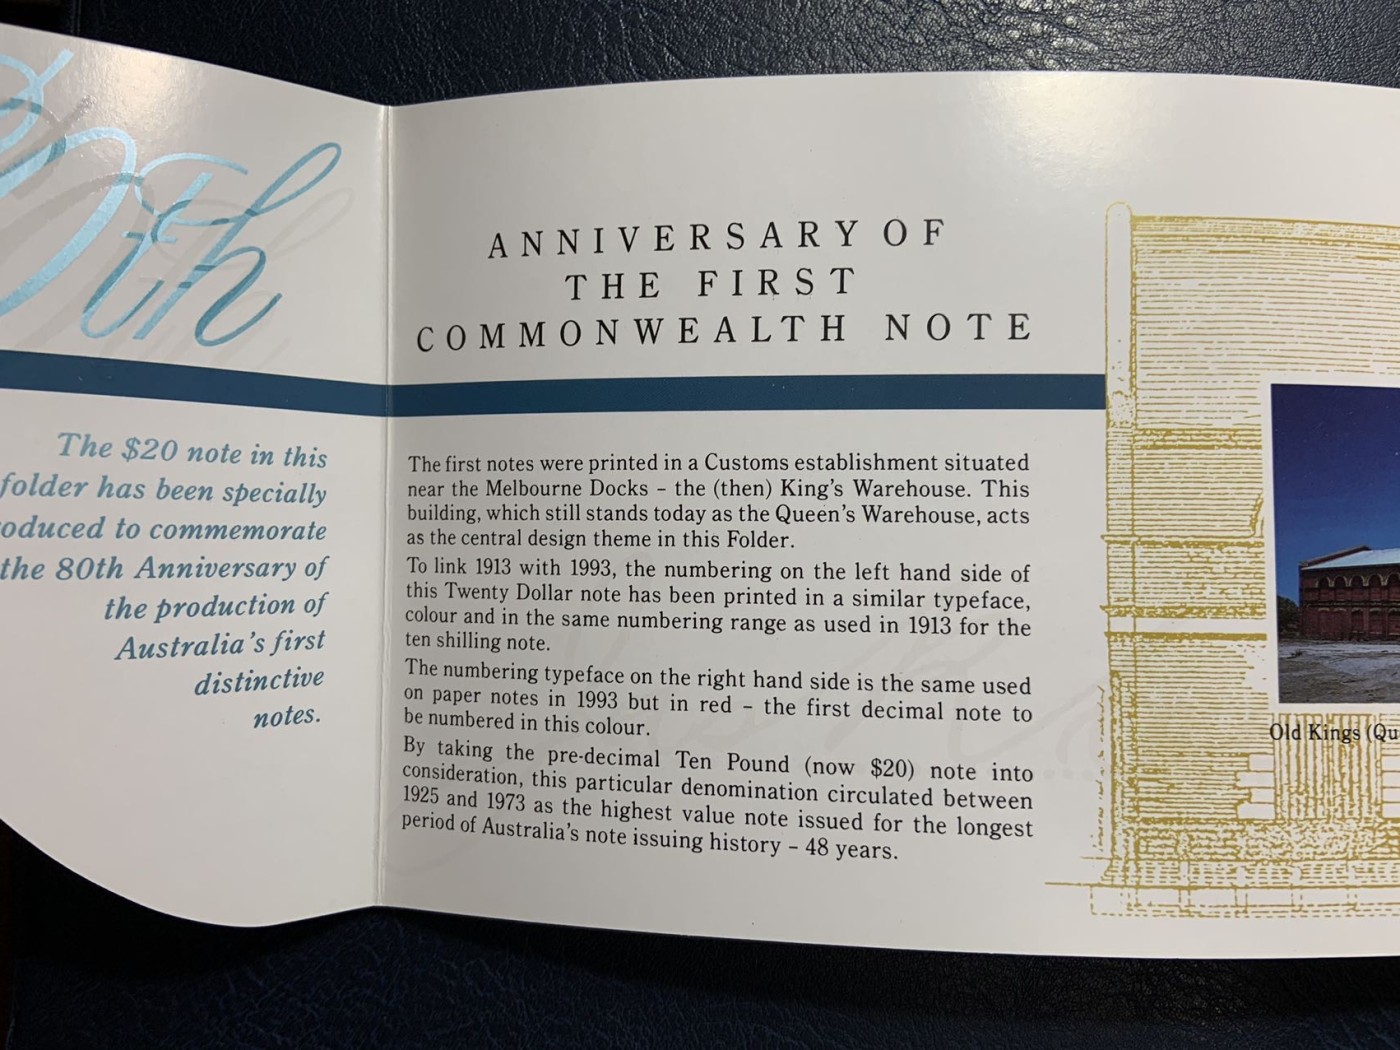 0th
The $20 note in this
folder has been specially
to commemorate
the 80th Anniversary of
the production of
Australia's first
distinctive
notes.
ANNIVERSARY OF
THE FIRST
COMMONWEALTH NOTE
The first notes were printed in a Customs establishment situated
near the Melbourne Docks – the (then) King's Warehouse. This
building, which still stands today as the Queen's Warehouse, acts
as the central design theme in this Folder.
To link 1913 with 1993, the numbering on the left hand side of
this Twenty Dollar note has been printed in a similar typeface,
colour and in the same numbering range as used in 1913 for the
ten shilling note.
The numbering typeface on the right hand side is the same used
on paper notes in 1993 but in red – the first decimal note to
be numbered in this colour.
By taking the pre-decimal Ten Pound (now $20) note into
consideration, this particular denomination circulated between
1925 and 1973 as the highest value note issued for the longest
period of Australia's note issuing history – 48 years.
Old Kings (Qu